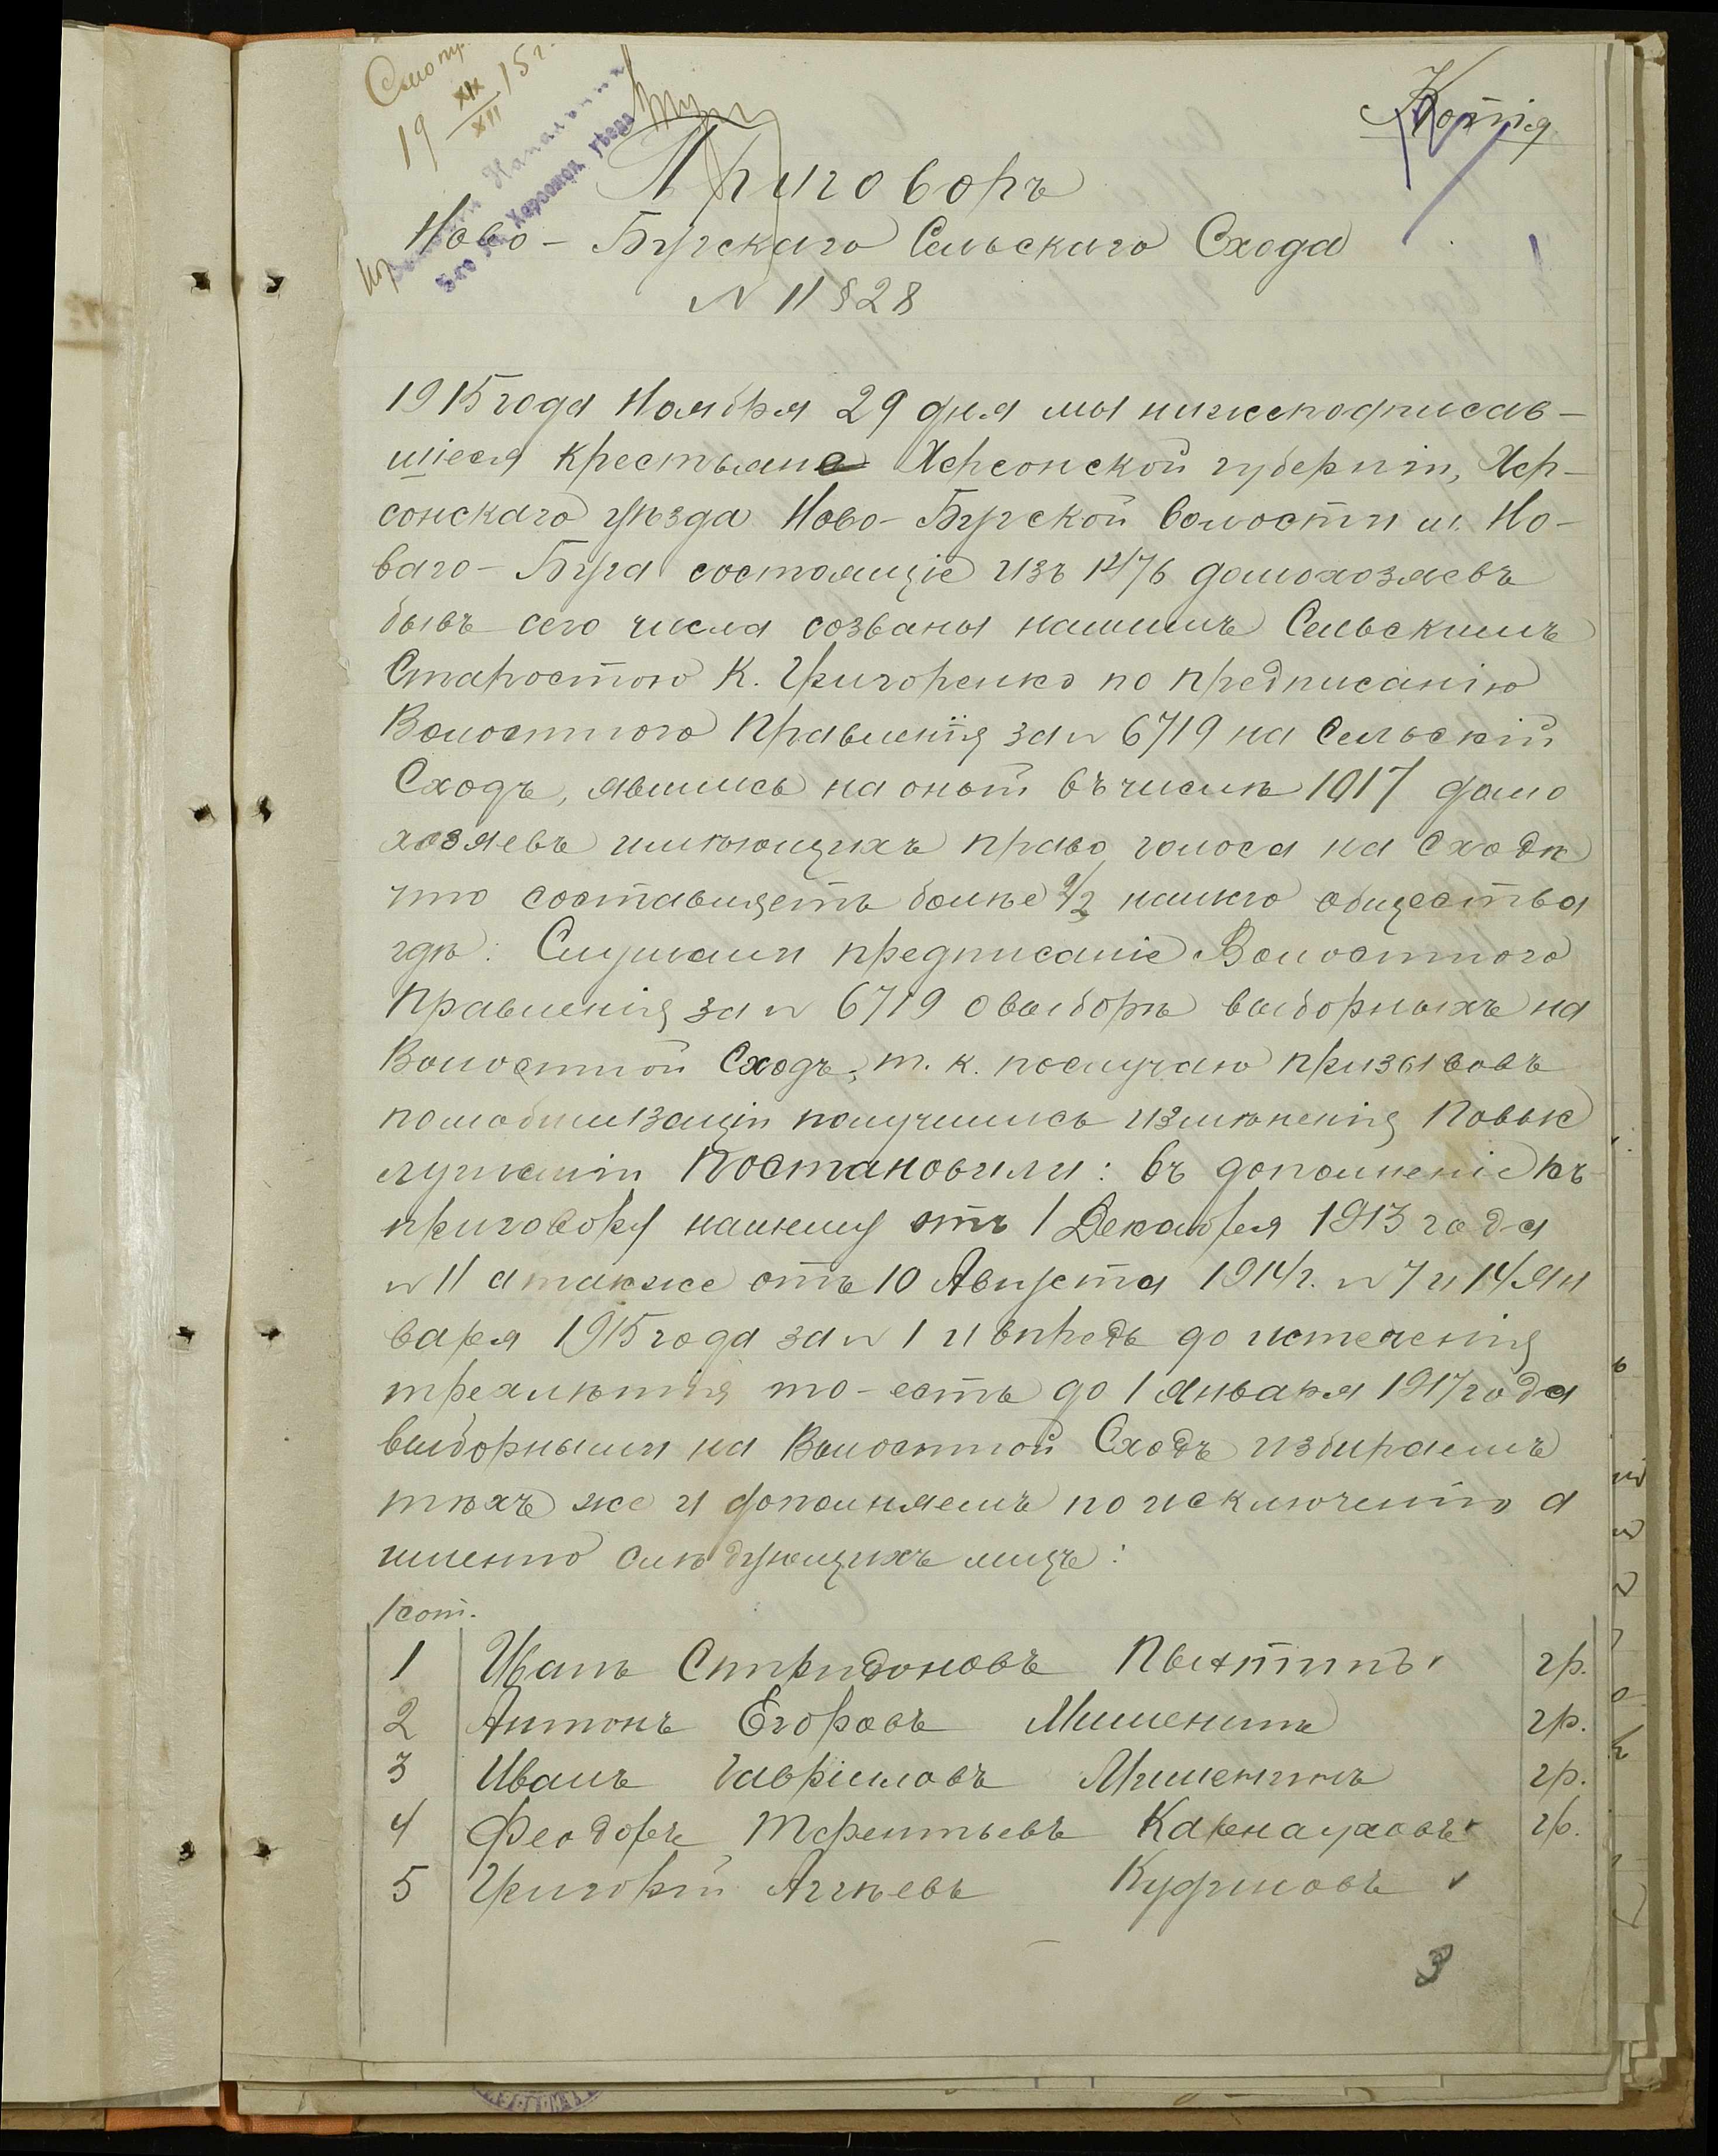 Смотр.
19 XIX/XII 15 г.
Земскій Начальникъ
5-го уч. Херсонск. уѣзда
Копія
Приговоръ
Ново-Бугскаго Сельскаго Схода
№ 11 § 28
1915 года Ноября 29 дня мы нижеподписав-
шіеся крестьяне Херсонской губерніи, Хер-
сонскаго уѣзда Ново-Бугской волости м. Но-
ваго-Буга состоящіе изъ 1476 домохозяевъ
бывъ сего числа созваны нашимъ Сельскимъ
Старостою К. Григоренко по предписанію
Волостного Правленія за № 6719 на Сельскій
Сходъ, явились на оный въ числѣ 1017 домо
хозяевъ имѣющихъ право голоса на Сходѣ
что составляетъ болѣе 1/2 нашего общества
гдѣ: Слушали предписаніе Волостного
Правленія за № 6719 о выборѣ выборныхъ на
Волостной Сходъ, т. к. послучаю призывовъ
помобилизаціи получились измѣненія Повыс
лушаніи Постановили: въ дополненіе къ
приговору нашему отъ 1 Декабря 1913 года
№ 11 атакже отъ 10 Августа 1914 г. № 7 и 14 Ян
варя 1915 года за № 1 и впредь до истеченія
трехлѣтія то-есть до 1 Января 1917 года
выборными на Волостной Сходъ избираемъ
тѣхъ же и дополняемъ по исключенію а
именно слѣдующихъ лицъ:
1 сот.
1 Иванъ Спиридоновъ гр.
2 Антонъ Егоровъ Мишенинъ гр.
3 Иванъ Гавриловъ Мишенинъ гр.
4 Феодоръ Терентьевъ Карнауховъ гр.
5 Григорій Аггѣевъ Кудриновъ
3